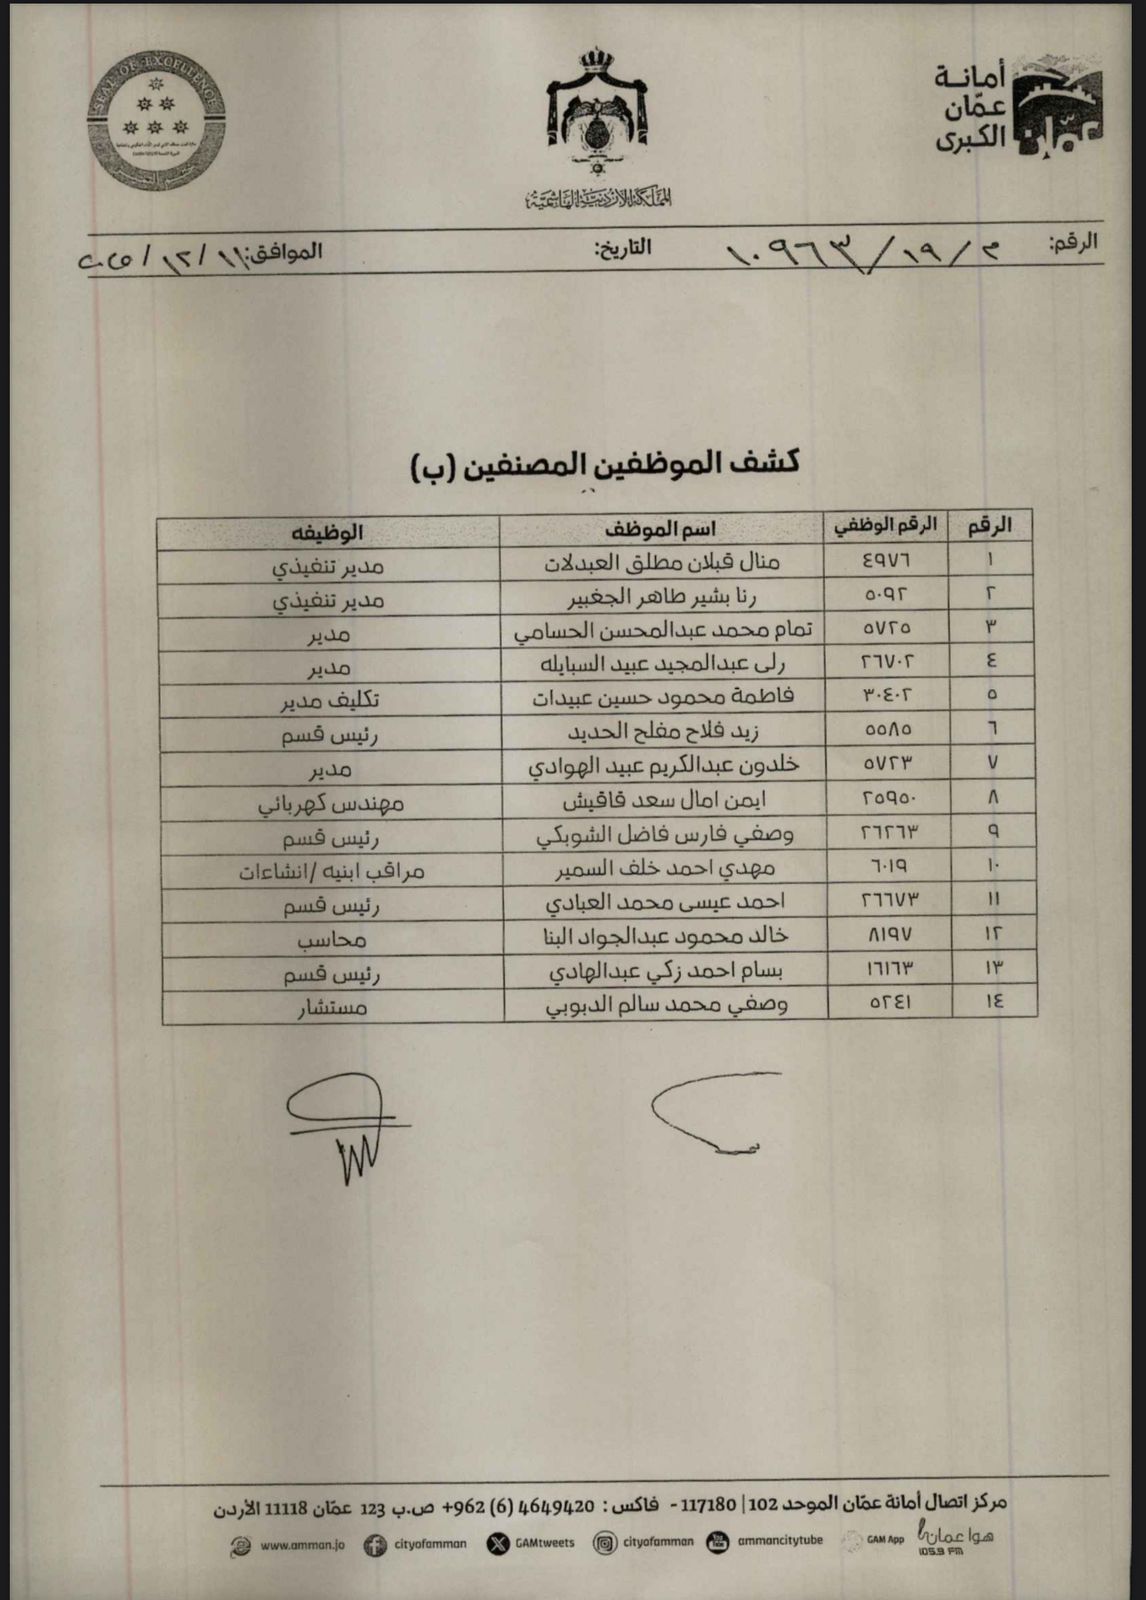 SEAL OF EXCELLENCE
المملكة الأردنية الهاشمية
أمانة
عمّان
الكبرى
عمّان
الرقم: م / ١٩ / ١٠٩٦٣ التاريخ: الموافق: ١١ / ١٢ /
كشف الموظفين المصنفين (ب)
الرقم الرقم الوظفي اسم الموظف الوظيفه
١ ٤٩٧٦ منال قبلان مطلق العبدلات مدير تنفيذي
٢ ٥٠٩٢ رنا بشير طاهر الجغبير مدير تنفيذي
٣ ٥٧٢٥ تمام محمد عبدالمحسن الحسامي مدير
٤ ٢٦٧٠٢ رلى عبدالمجيد عبيد السبايله مدير
٥ ٣٠٤٠٢ فاطمة محمود حسين عبيدات تكليف مدير
٦ ٥٥٨٥ زيد فلاح مفلح الحديد رئيس قسم
٧ ٥٧٢٣ خلدون عبدالكريم عبيد الهوادي مدير
٨ ٢٥٩٥٠ ايمن امال سعد قاقيش مهندس كهربائي
٩ ٢٦٢٦٣ وصفي فارس فاضل الشوبكي رئيس قسم
١٠ ٦٠١٩ مهدي احمد خلف السمير مراقب ابنيه /انشاءات
١١ ٢٦٦٧٣ احمد عيسى محمد العبادي رئيس قسم
١٢ ٨١٩٧ خالد محمود عبدالجواد البنا محاسب
١٣ ١٦١٦٣ بسام احمد زكي عبدالهادي رئيس قسم
١٤ ٥٢٤١ وصفي محمد سالم الدبوبي مستشار
مركز اتصال أمانة عمّان الموحد 102 | 117180 - فاكس : 4649420 (6) 962+ ص.ب 123 عمّان 11118 الأردن
www.amman.jo cityofamman GAMtweets cityofamman ammancitytube GAM App هوا عمان
105.9 FM